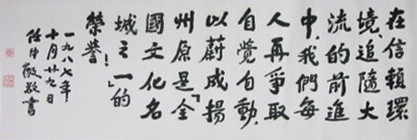 在信賴環
境、追隨大
流的前進
中,我們每
人再爭取
自覺自動,
以蔚成揚
州原是「全
國文化名
城之一」的
榮譽!
一九八七年
十月廿九日
任中敏敬書